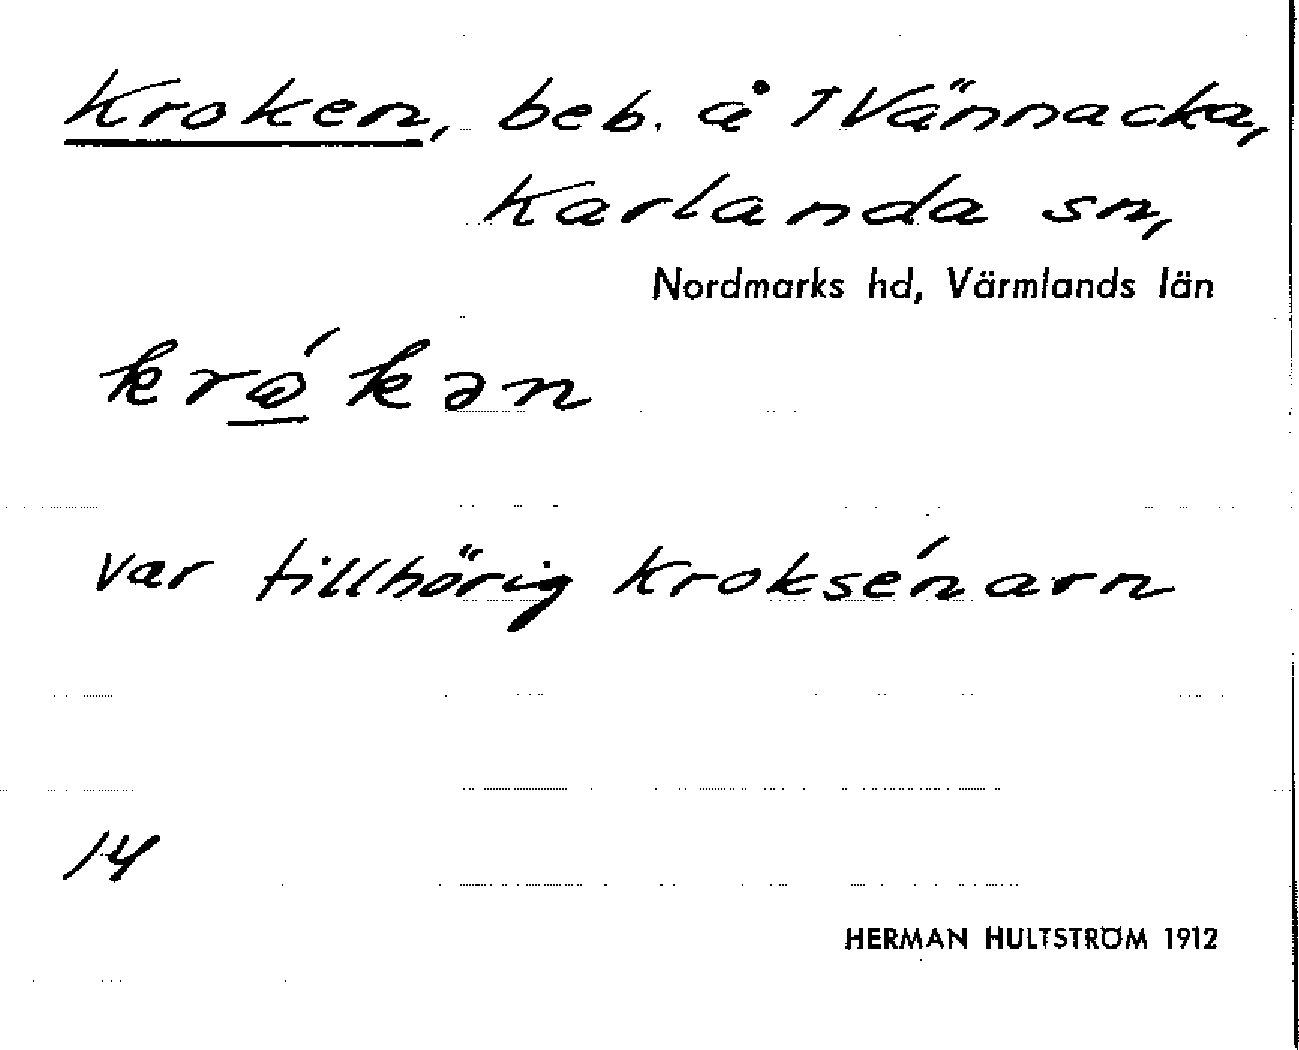 Kroken, beb. å 1 Vännacka,
Karlanda sn,
Nordmarks hd, Värmlands län
krǿkən
var tillhörig Kroksénarn
14
HERMAN HULTSTRÖM 1912